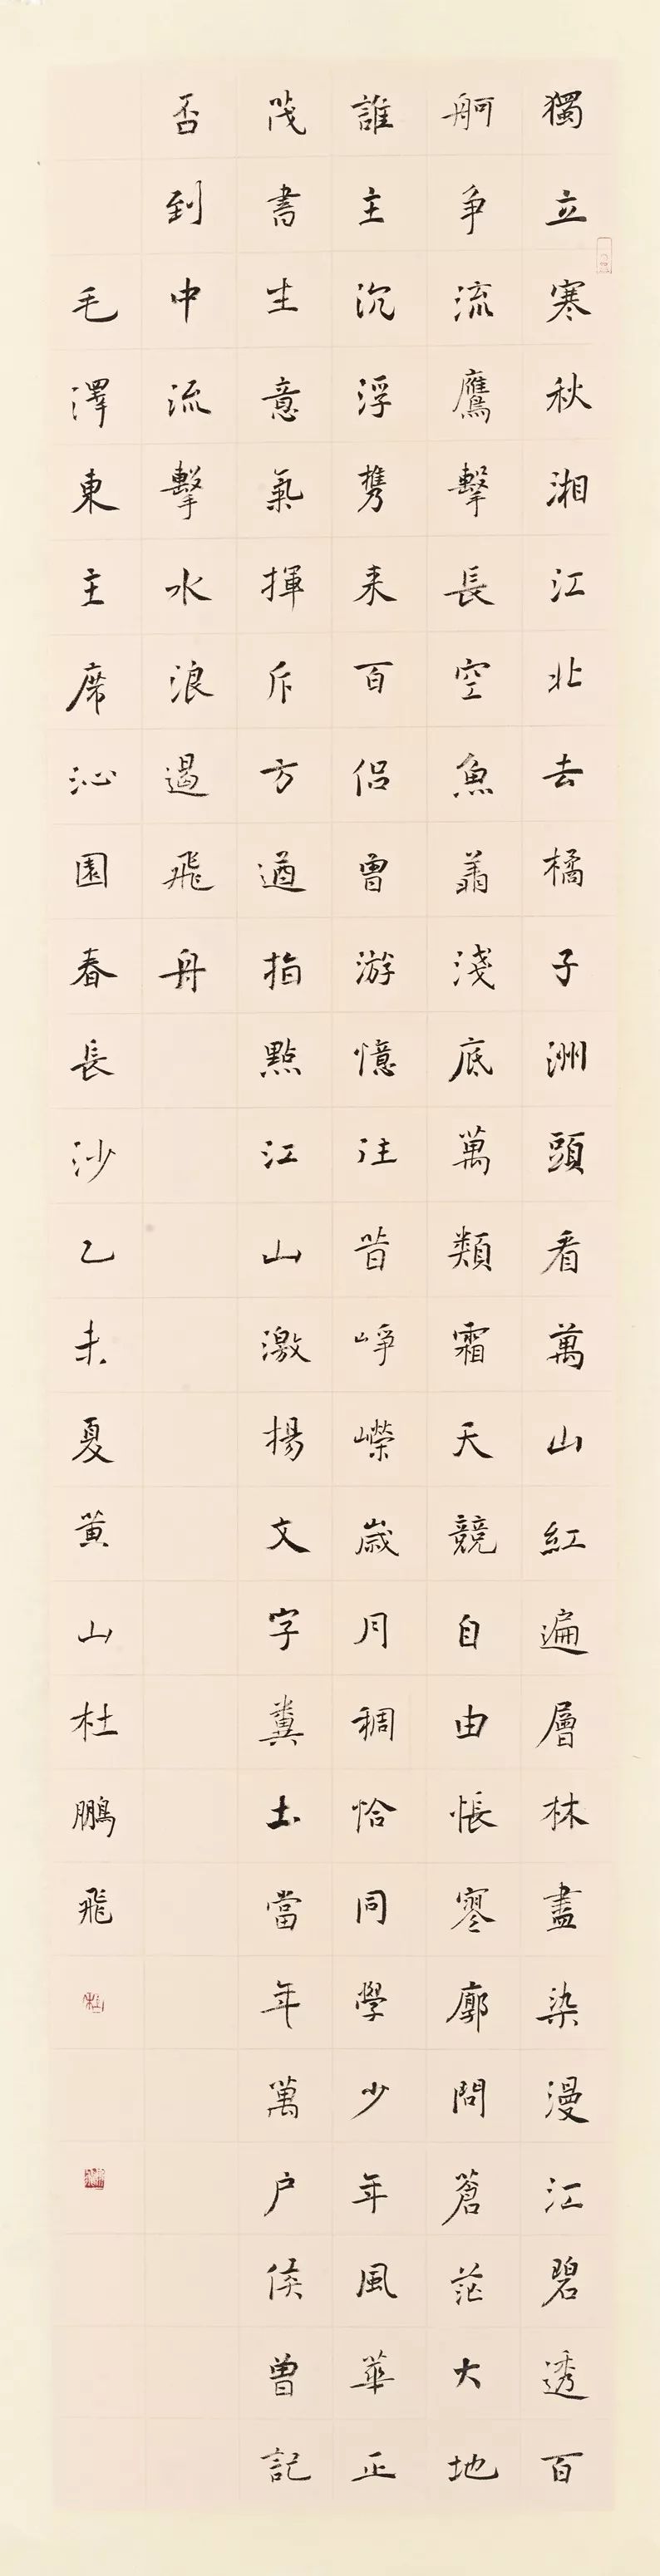 獨立寒秋湘江北去橘子洲頭看萬山紅遍層林盡染漫江碧透百
舸争流鷹擊長空魚翔淺底萬類霜天競自由悵寥廓問蒼茫大地
誰主沉浮攜来百侣曾游憶往昔崢嶸歲月稠恰同學少年風華正
茂書生意氣揮斥方遒指點江山激揚文字糞土當年萬户侯曾記
否到中流擊水浪遏飛舟
毛澤東主席沁園春長沙乙未夏黄山杜鵬飛